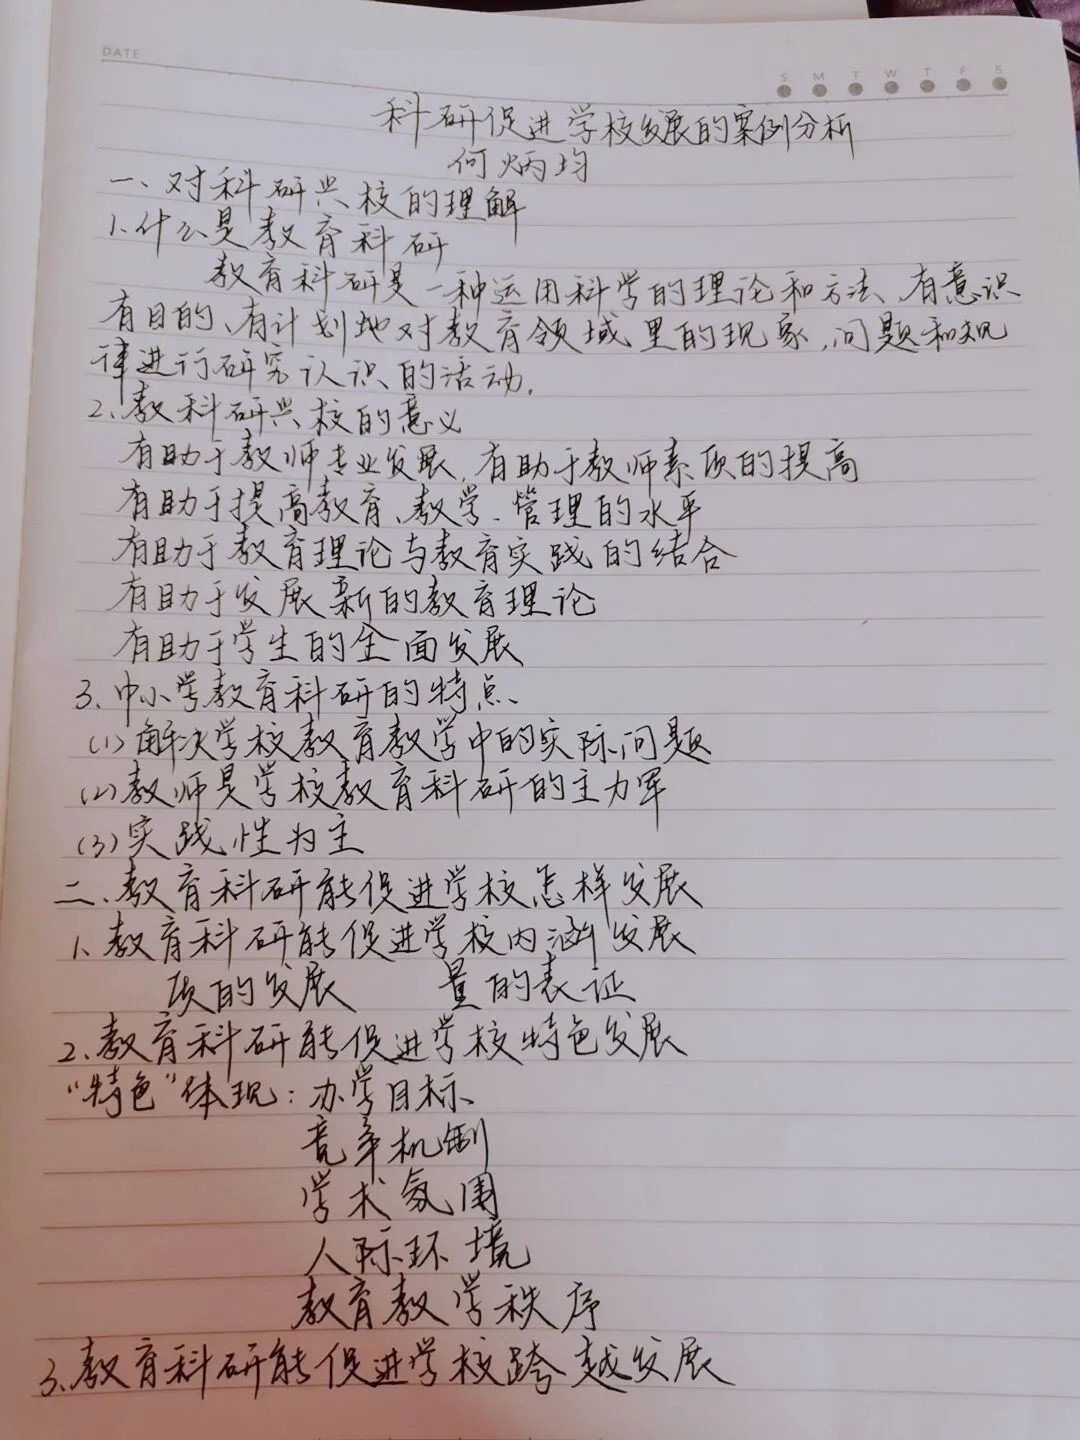 DATE
S M T W T F S
科研促进学校发展的案例分析
何炳均
一、对科研兴校的理解
1.什么是教育科研
教育科研是一种运用科学的理论和方法、有意识
有目的、有计划地对教育领域里的现象,问题和规
律进行研究认识的活动.
2、教科研兴校的意义
有助于教师专业发展,有助于教师素质的提高
有助于提高教育、教学、管理的水平
有助于教育理论与教育实践的结合
有助于发展新的教育理论
有助于学生的全面发展
3、中小学教育科研的特点、
(1)解决学校教育教学中的实际问题
(2)教师是学校教育科研的主力军
(3)实践性为主
二、教育科研能促进学校怎样发展
1、教育科研能促进学校内涵发展
质的发展 量的表证
2、教育科研能促进学校特色发展
“特色”体现:办学目标
竞争机制
学术氛围
人际环境
教育教学秩序
3、教育科研能促进学校跨越发展